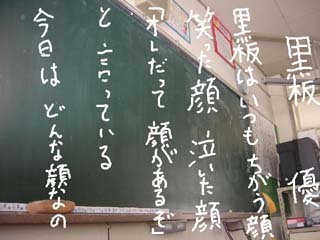 黒板 優
黒板はいつもちがう顔
笑った顔 泣いた顔
「オレだって顔があるぞ」
と言っている
今日はどんな顔なの